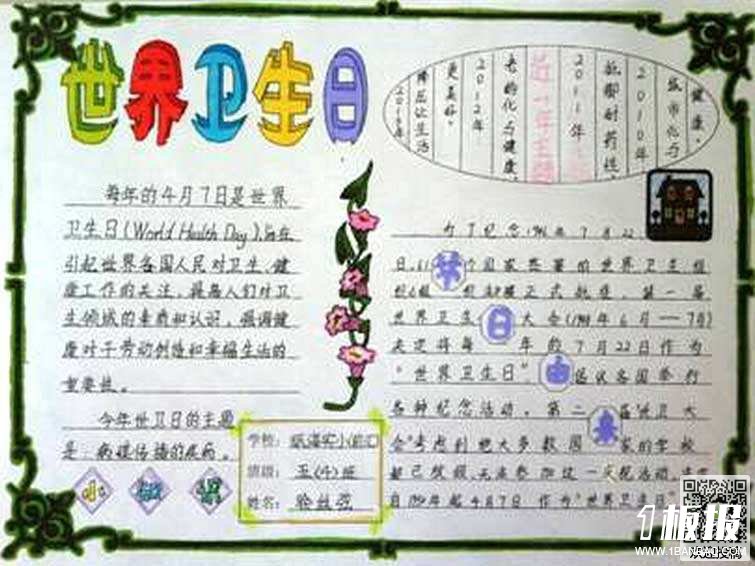 世界卫生日
每年的4月7日是世界
卫生日(World Health Day),旨在
引起世界各国人民对卫生、健
康工作的关注，提高人们对卫
生领域的素质和认识，强调健
康对于劳动创造和幸福生活的
重要性。
今年世卫日的主题
是：病媒传播的疾病。
小知识
健康。
城市化与
2010年
抵御耐药性
2011年
近一年主题
老龄化与健康
2012年
更美好。
降压让生活
2013年
为了纪念1946年7月22
日,61个国家签署的世界卫生组
正式批准，第一届
世界卫生大会(1948年6月—7月)
决定将每年的7月22日作为
“世界卫生日”，
各种纪念活动。第二届世卫大
会考虑到绝大多数国家的学校
都已放假，无法参加这一庆祝活动
自1950年起4月7日作为“世界卫生日”
日
由
来
学校：
班级：五(4)班
姓名：
1板报
WWW.1BANBAO.COM